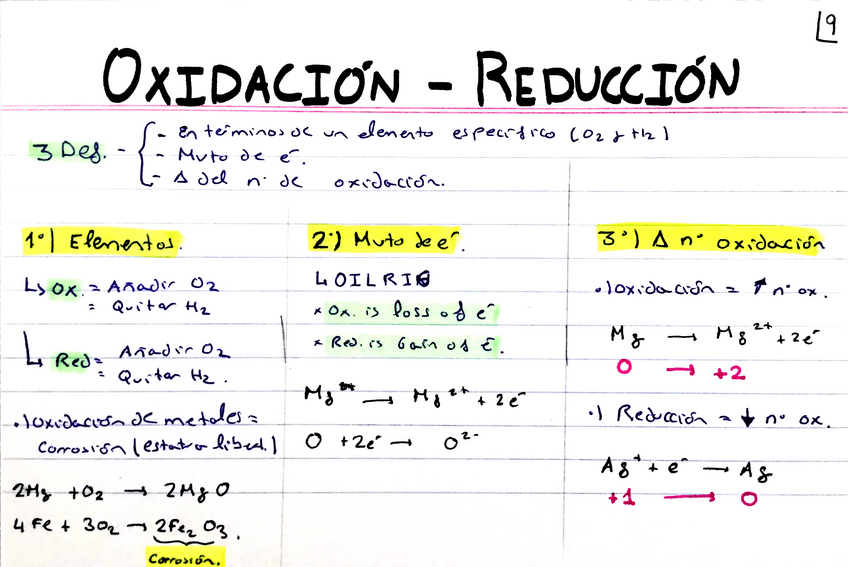 9
OXIDACIÓN - REDUCCIÓN
3 Def. - - En términos de un elemento específico (O2 y H2)
- Muto de e-.
- Δ del nº de oxidación.
1º) Elementos.
↳ Ox. = Añadir O2
= Quitar H2
↳ Red = Añadir O2
= Quitar H2.
·) Oxidación de metales =
Corrosión (estado libre)
2Mg + O2 → 2MgO
4Fe + 3O2 → 2Fe2O3.
Corrosión.
2º) Muto de e-.
↳ OILRIG
* Ox. is loss of e-
* Red. is Gain of e-.
Mg → Mg2+ + 2e-
O + 2e- → O2-
3º) Δ nº oxidación
·) oxidación = ↑ nº ox.
Mg → Mg2+ + 2e-
0 → +2
·) Reducción = ↓ nº ox.
Ag+ + e- → Ag
+1 → 0